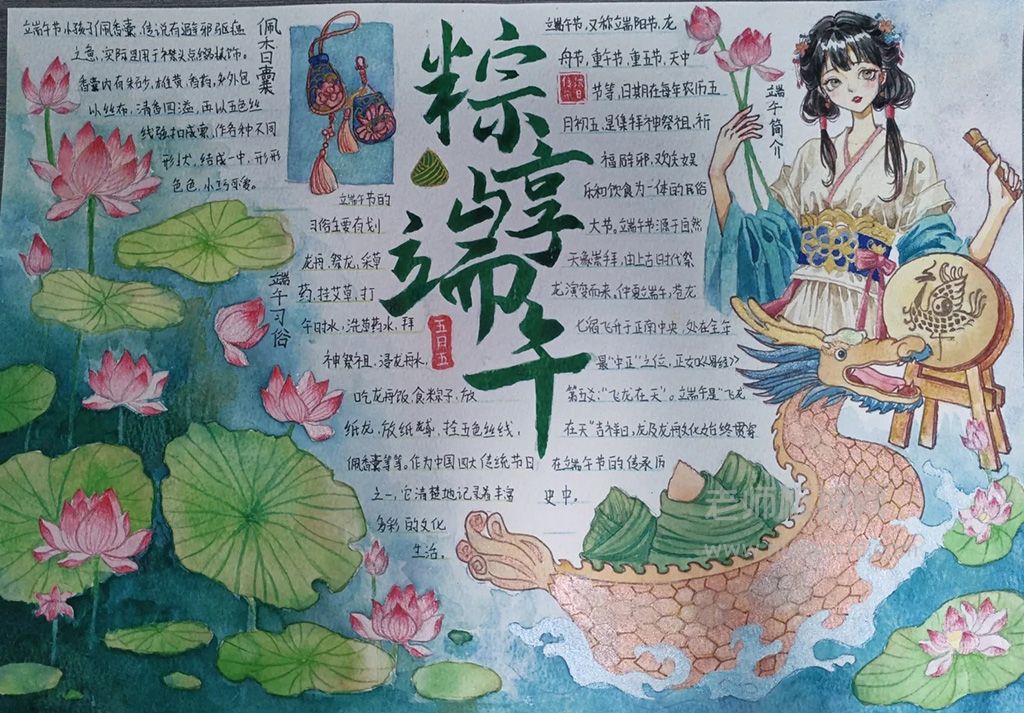 粽享
与
端午
五日五
佩香囊
端午节小孩子佩香囊,传说有避邪驱瘟
之意,实际是用于襟头点缀装饰。
香囊内有朱砂,雄黄,香药,外包
以丝布,清香四溢,再以五色丝
线弦扣成索,作各种不同
形状,结成一串,形形
色色,小巧可爱。
端午习俗
端午节的
习俗主要有划
龙舟,祭龙,采草
药,挂艾草,打
午时水,洗草药水,拜
神祭祖,浸龙舟水,
吃龙舟饭,食粽子,放
纸龙,放纸鸢,拴五色丝线,
佩香囊等等。作为中国四大传统节日
之一,它清楚地记录着丰富
多彩的文化
生活。
端午简介
端午节,又称端阳节,龙
舟节,重午节,重五节,天中
传统节日
节等,日期在每年农历五
月初五,是集拜神祭祖,祈
福辟邪,欢庆娱
乐和饮食为一体的民俗
大节。端午节源于自然
天象崇拜,由上古时代祭
龙演变而来。仲夏端午,苍龙
七宿飞升于正南中央,处在全年
最“中正”之位,正如《易经》
第五爻:“飞龙在天”。端午是“飞龙
在天”吉祥日,龙及龙舟文化始终贯穿
在端午节的传承历
史中。
午